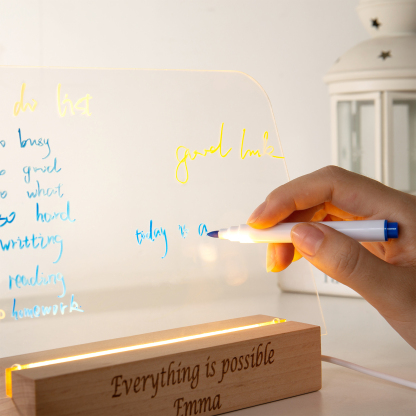 do list
so busy
so good
so what
so hard
writting
reading
homework
good luck
today is a
Everything is possible
Emma